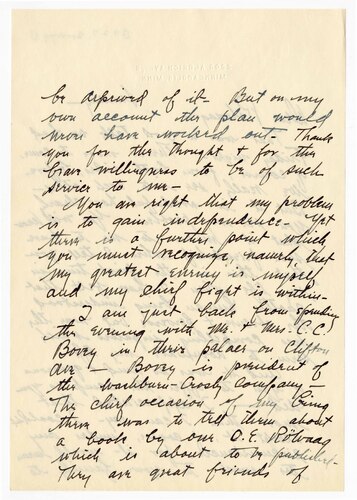 be deprived of it - But on my
own account the plan would
never have worked out - Thank
you for the thought & for the
brave willingness to be of such
service to me -
You are right that my problem
is to gain independence. Yet
there is a further point which
you must recognize, namely, that
my greatest enemy is myself
and my chief fight is within -
I am just back from spending
the evening with Mr. & Mrs. C.C.
Bovey in their palace on Clifton
Ave - Bovey is president of
the Washburn-Crosby Company -
The chief occasion of my being
there was to tell them about
a book by our O.E. Rölvaag
which is about to be published.
They are great friends of